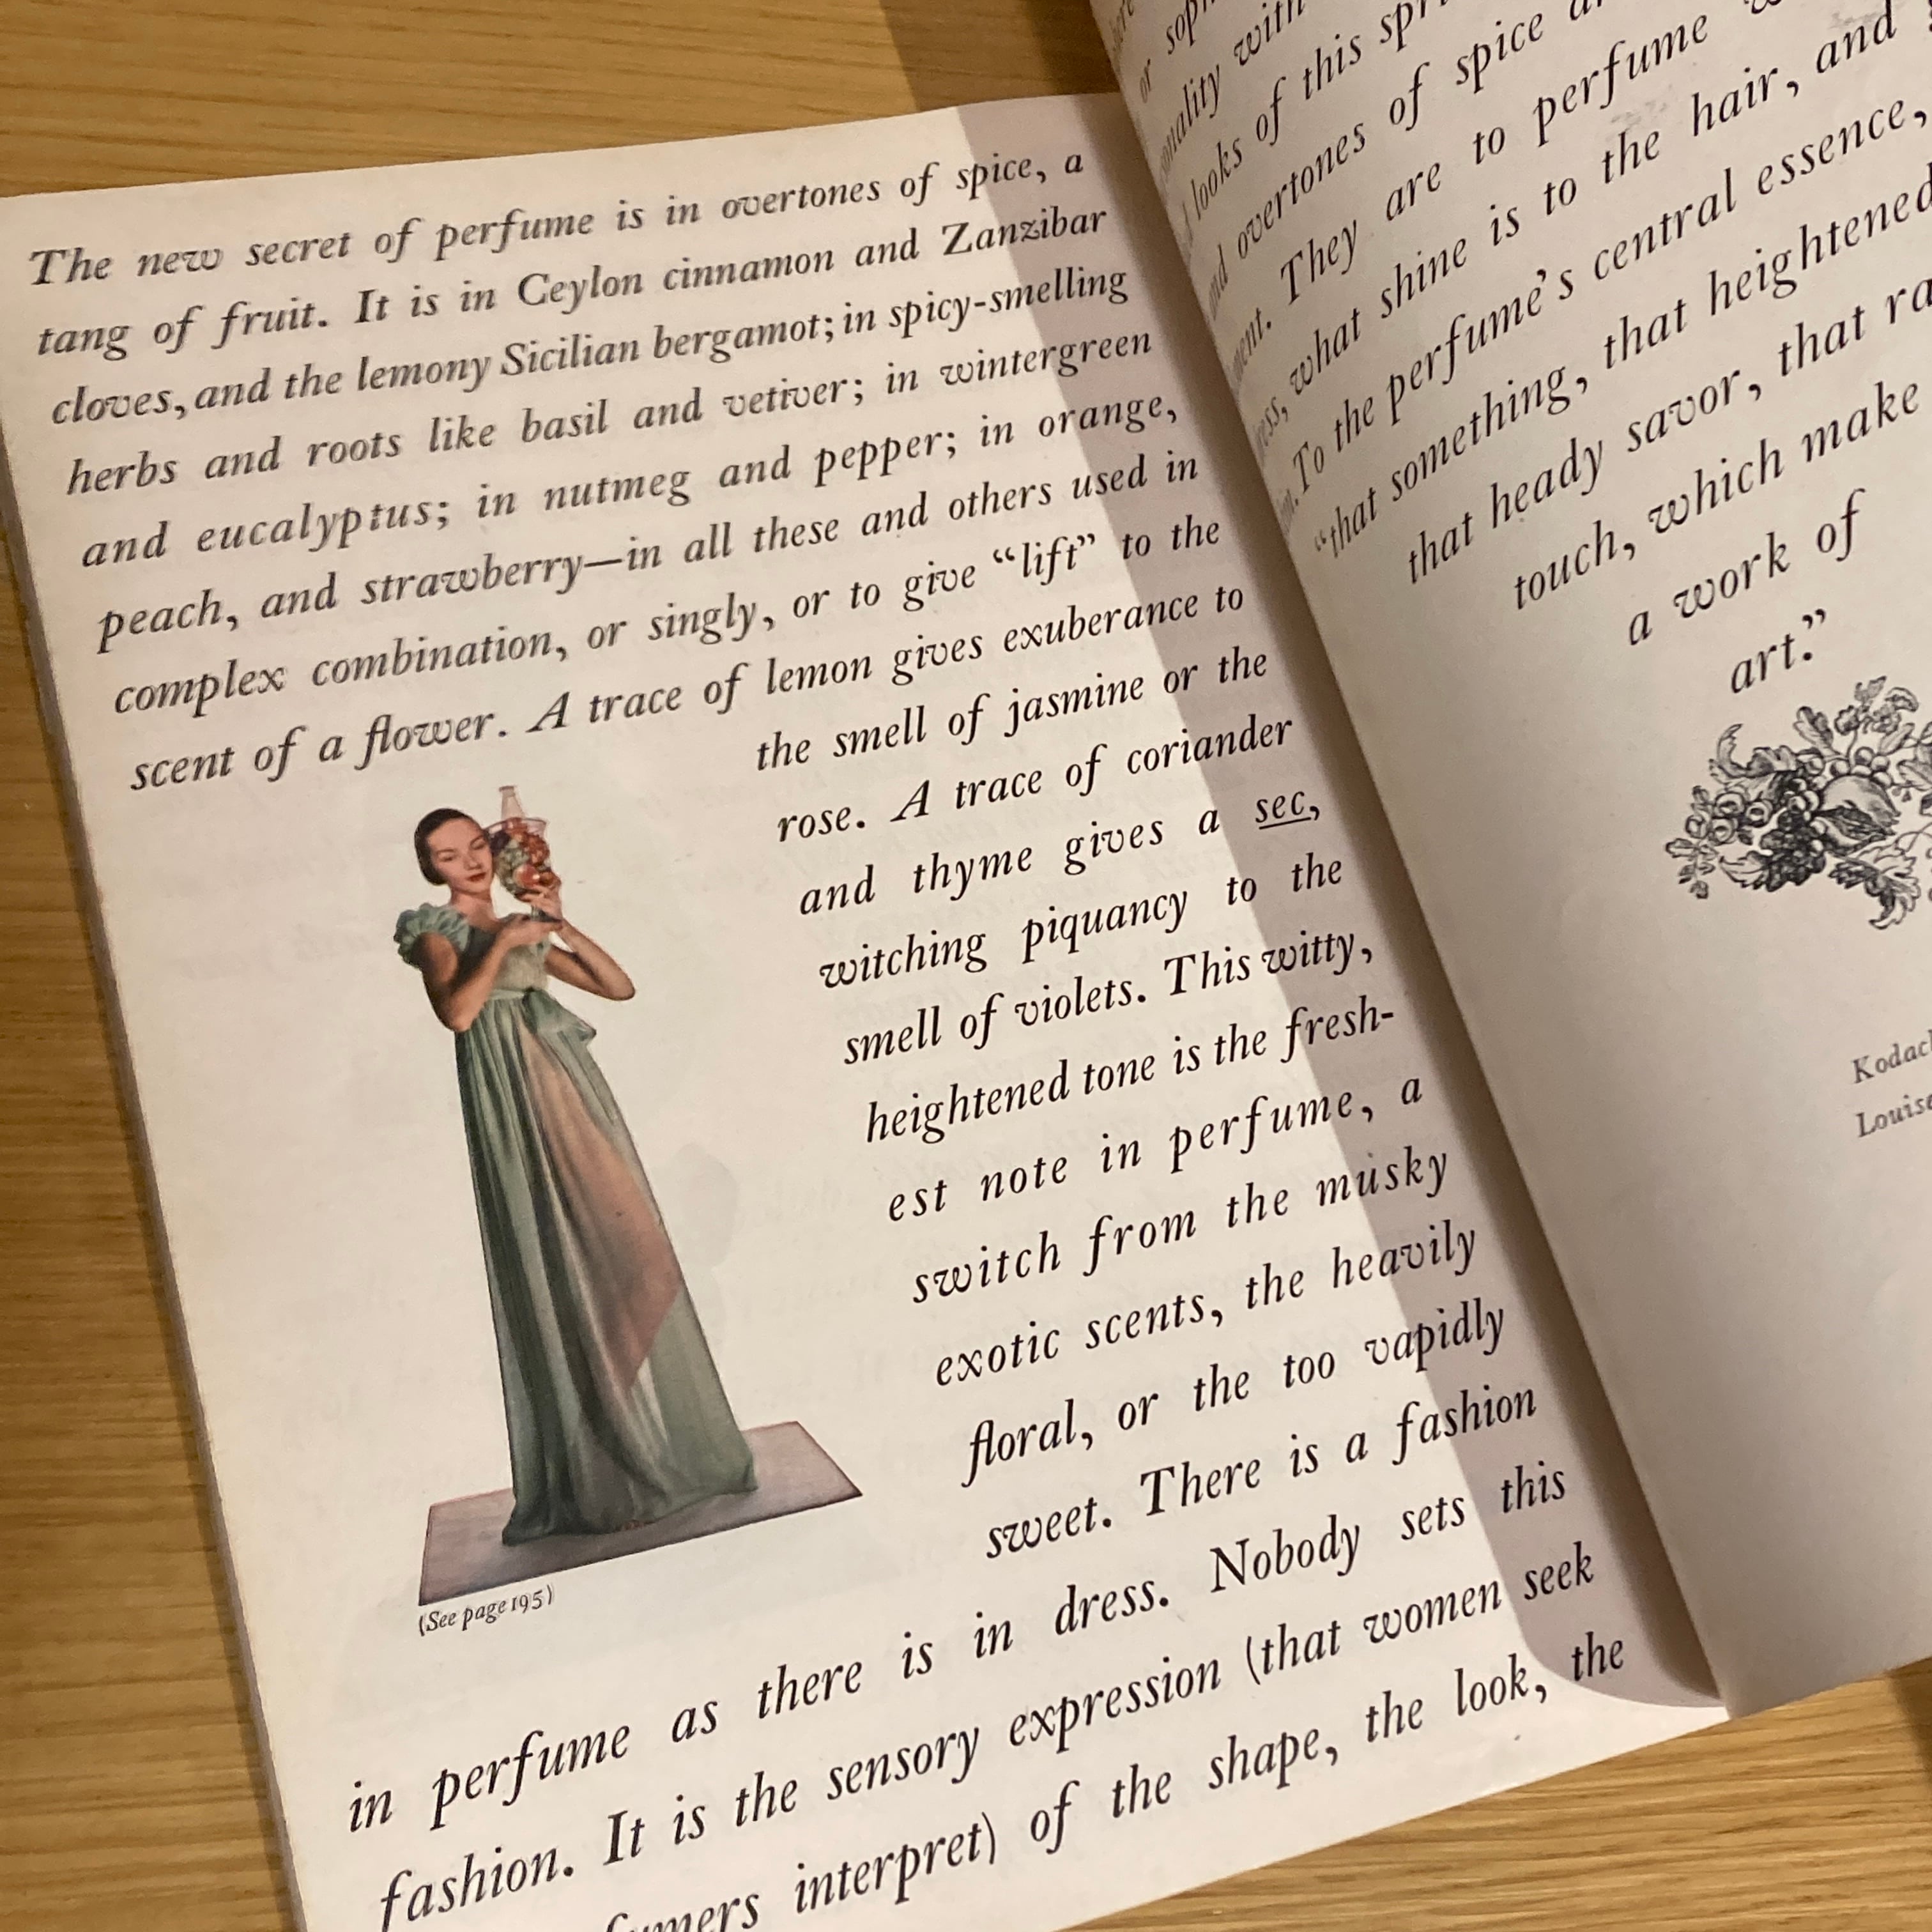 The new secret of perfume is in overtones of spice, a
tang of fruit. It is in Ceylon cinnamon and Zanzibar
cloves, and the lemony Sicilian bergamot; in spicy-smelling
herbs and roots like basil and vetiver; in wintergreen
and eucalyptus; in nutmeg and pepper; in orange,
peach, and strawberry—in all these and others used in
complex combination, or singly, or to give “lift” to the
scent of a flower. A trace of lemon gives exuberance to
the smell of jasmine or the
rose. A trace of coriander
and thyme gives a sec,
witching piquancy to the
smell of violets. This witty,
heightened tone is the fresh-
est note in perfume, a
switch from the musky
exotic scents, the heavily
floral, or the too vapidly
sweet. There is a fashion
(See page 195)
in perfume as there is in dress. Nobody sets this
fashion. It is the sensory expression (that women seek
interpret) of the shape, the look, the
or
with
looks of this
and overtones of spice
They are to perfume
what shine is to the hair, and
To the perfume’s central essence,
“that something, that heightened
that heady savor, that
touch, which make
a work of
art.”